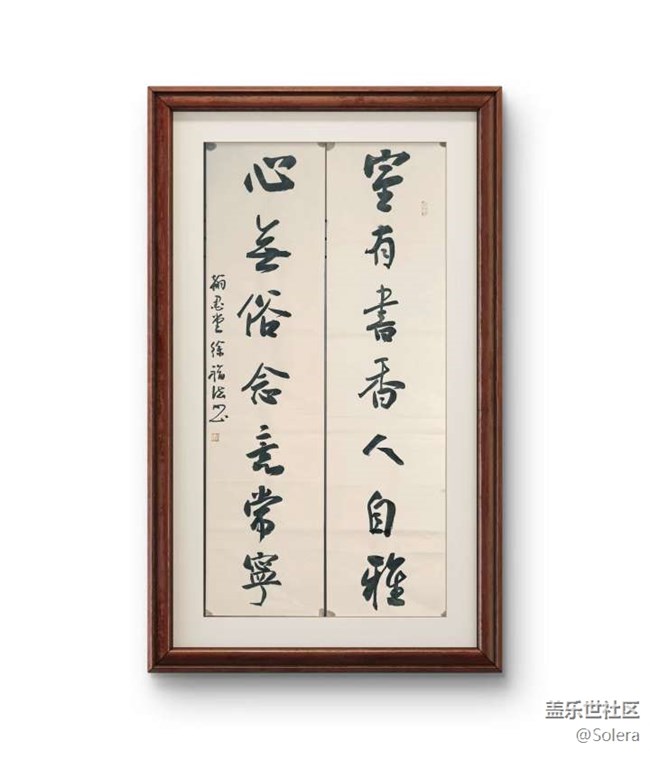 室有書香人自雅
心無俗念意常寧
翰墨堂徐福
盖乐世社区
@Solera